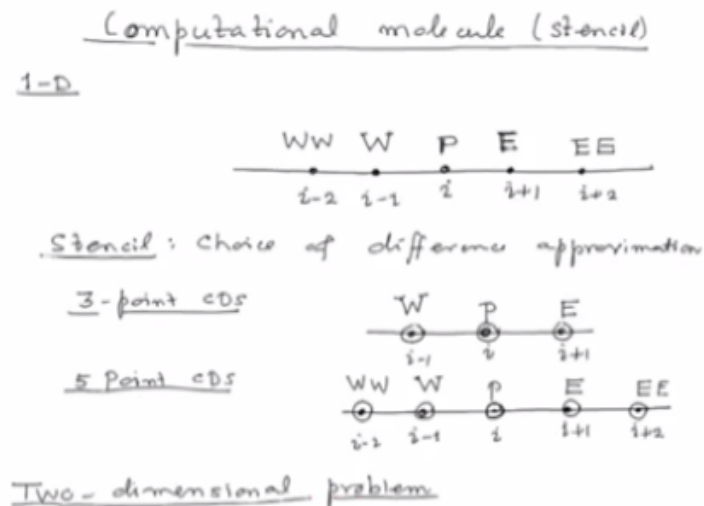 Computational molecule (stencil)
1-D
WW W P E EE
i-2 i-1 i i+1 i+2
Stencil: Choice of difference approximation
3-point CDS
W P E
i-1 i i+1
5 Point CDS
WW W P E EE
i-2 i-1 i i+1 i+2
Two-dimensional problem